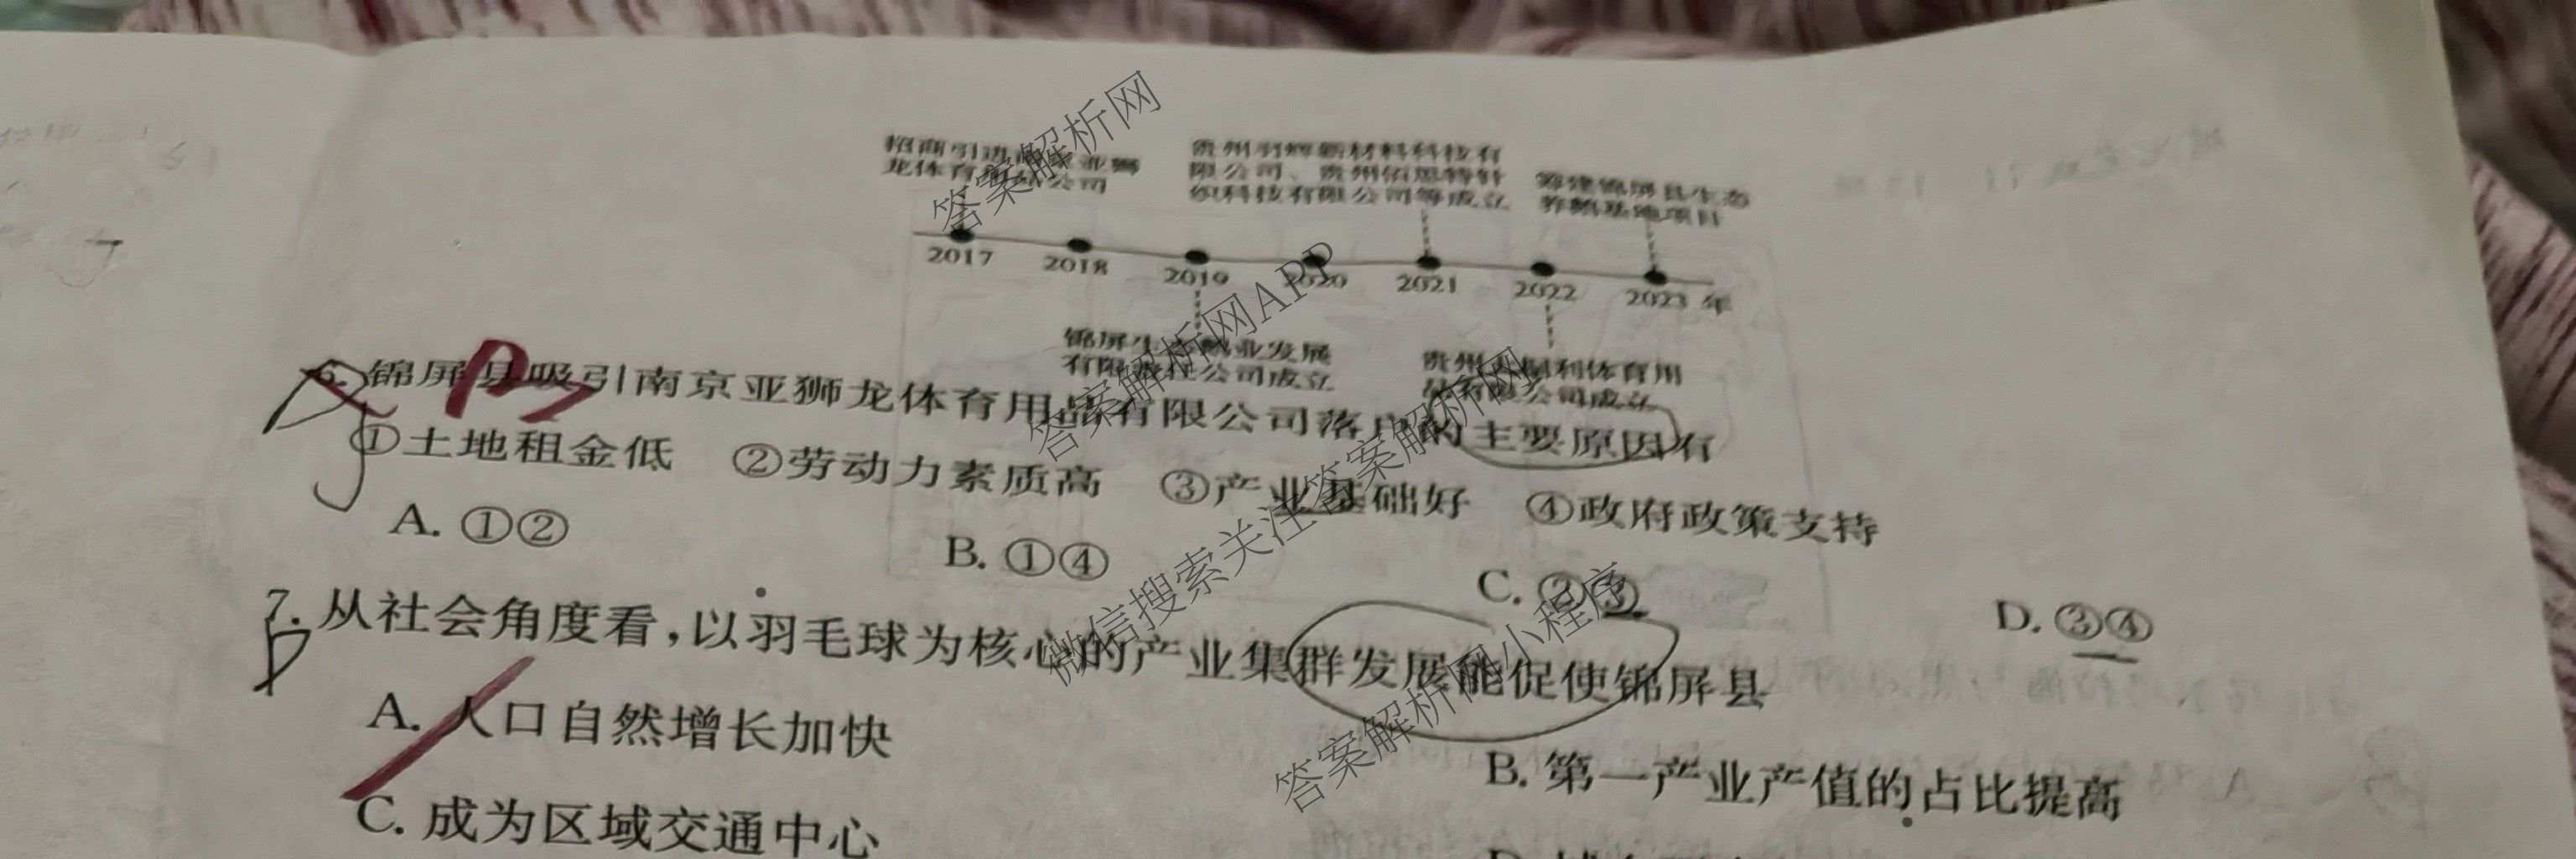 招商引进 亚狮
龙体育 公司
贵州羽辉新材料科技有
限公司、贵州佰思特针
织科技有限公司等成立
筹建锦屏县生态
养鹅基地项目
2017 2018 2019 2020 2021 2022 2023 年
锦屏 鹅业发展
有限 公司成立
贵州 利体育用
品有限公司成立
6. 锦屏县吸引南京亚狮龙体育用品有限公司落户的主要原因有
①土地租金低 ②劳动力素质高 ③产业基础好 ④政府政策支持
A. ①② B. ①④ C. ②③ D. ③④
7. 从社会角度看,以羽毛球为核心的产业集群发展能促使锦屏县
A. 人口自然增长加快 B. 第一产业产值的占比提高
C. 成为区域交通中心
答案解析网
答案解析网APP
微信搜索关注答案解析网
答案解析网小程序